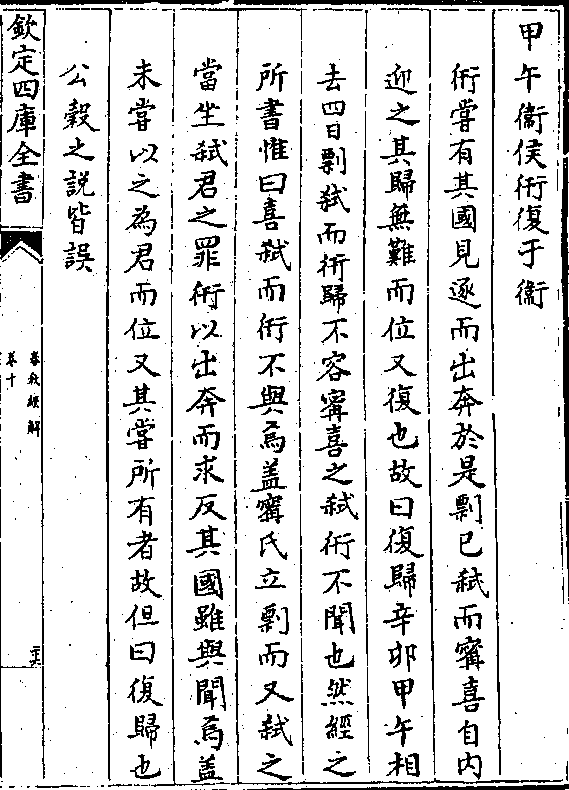 甲午衞侯衎復于衞
衎嘗有其國見逐而出奔於是剽已弑而寗喜自内
迎之其歸無難而位又復也故曰復歸辛卯甲午相
去四日剽弑而衎歸不容寗喜之弑衎不聞也然經之
所書惟曰喜弑而衎不與焉盖寗氏立剽而又弑之
當坐弑君之罪衎以出奔而求反其國雖與聞焉盖
未嘗以之為君而位又其嘗所有者故但曰復歸也
公穀之説皆誤
欽定四庫全書
春秋經解
卷十